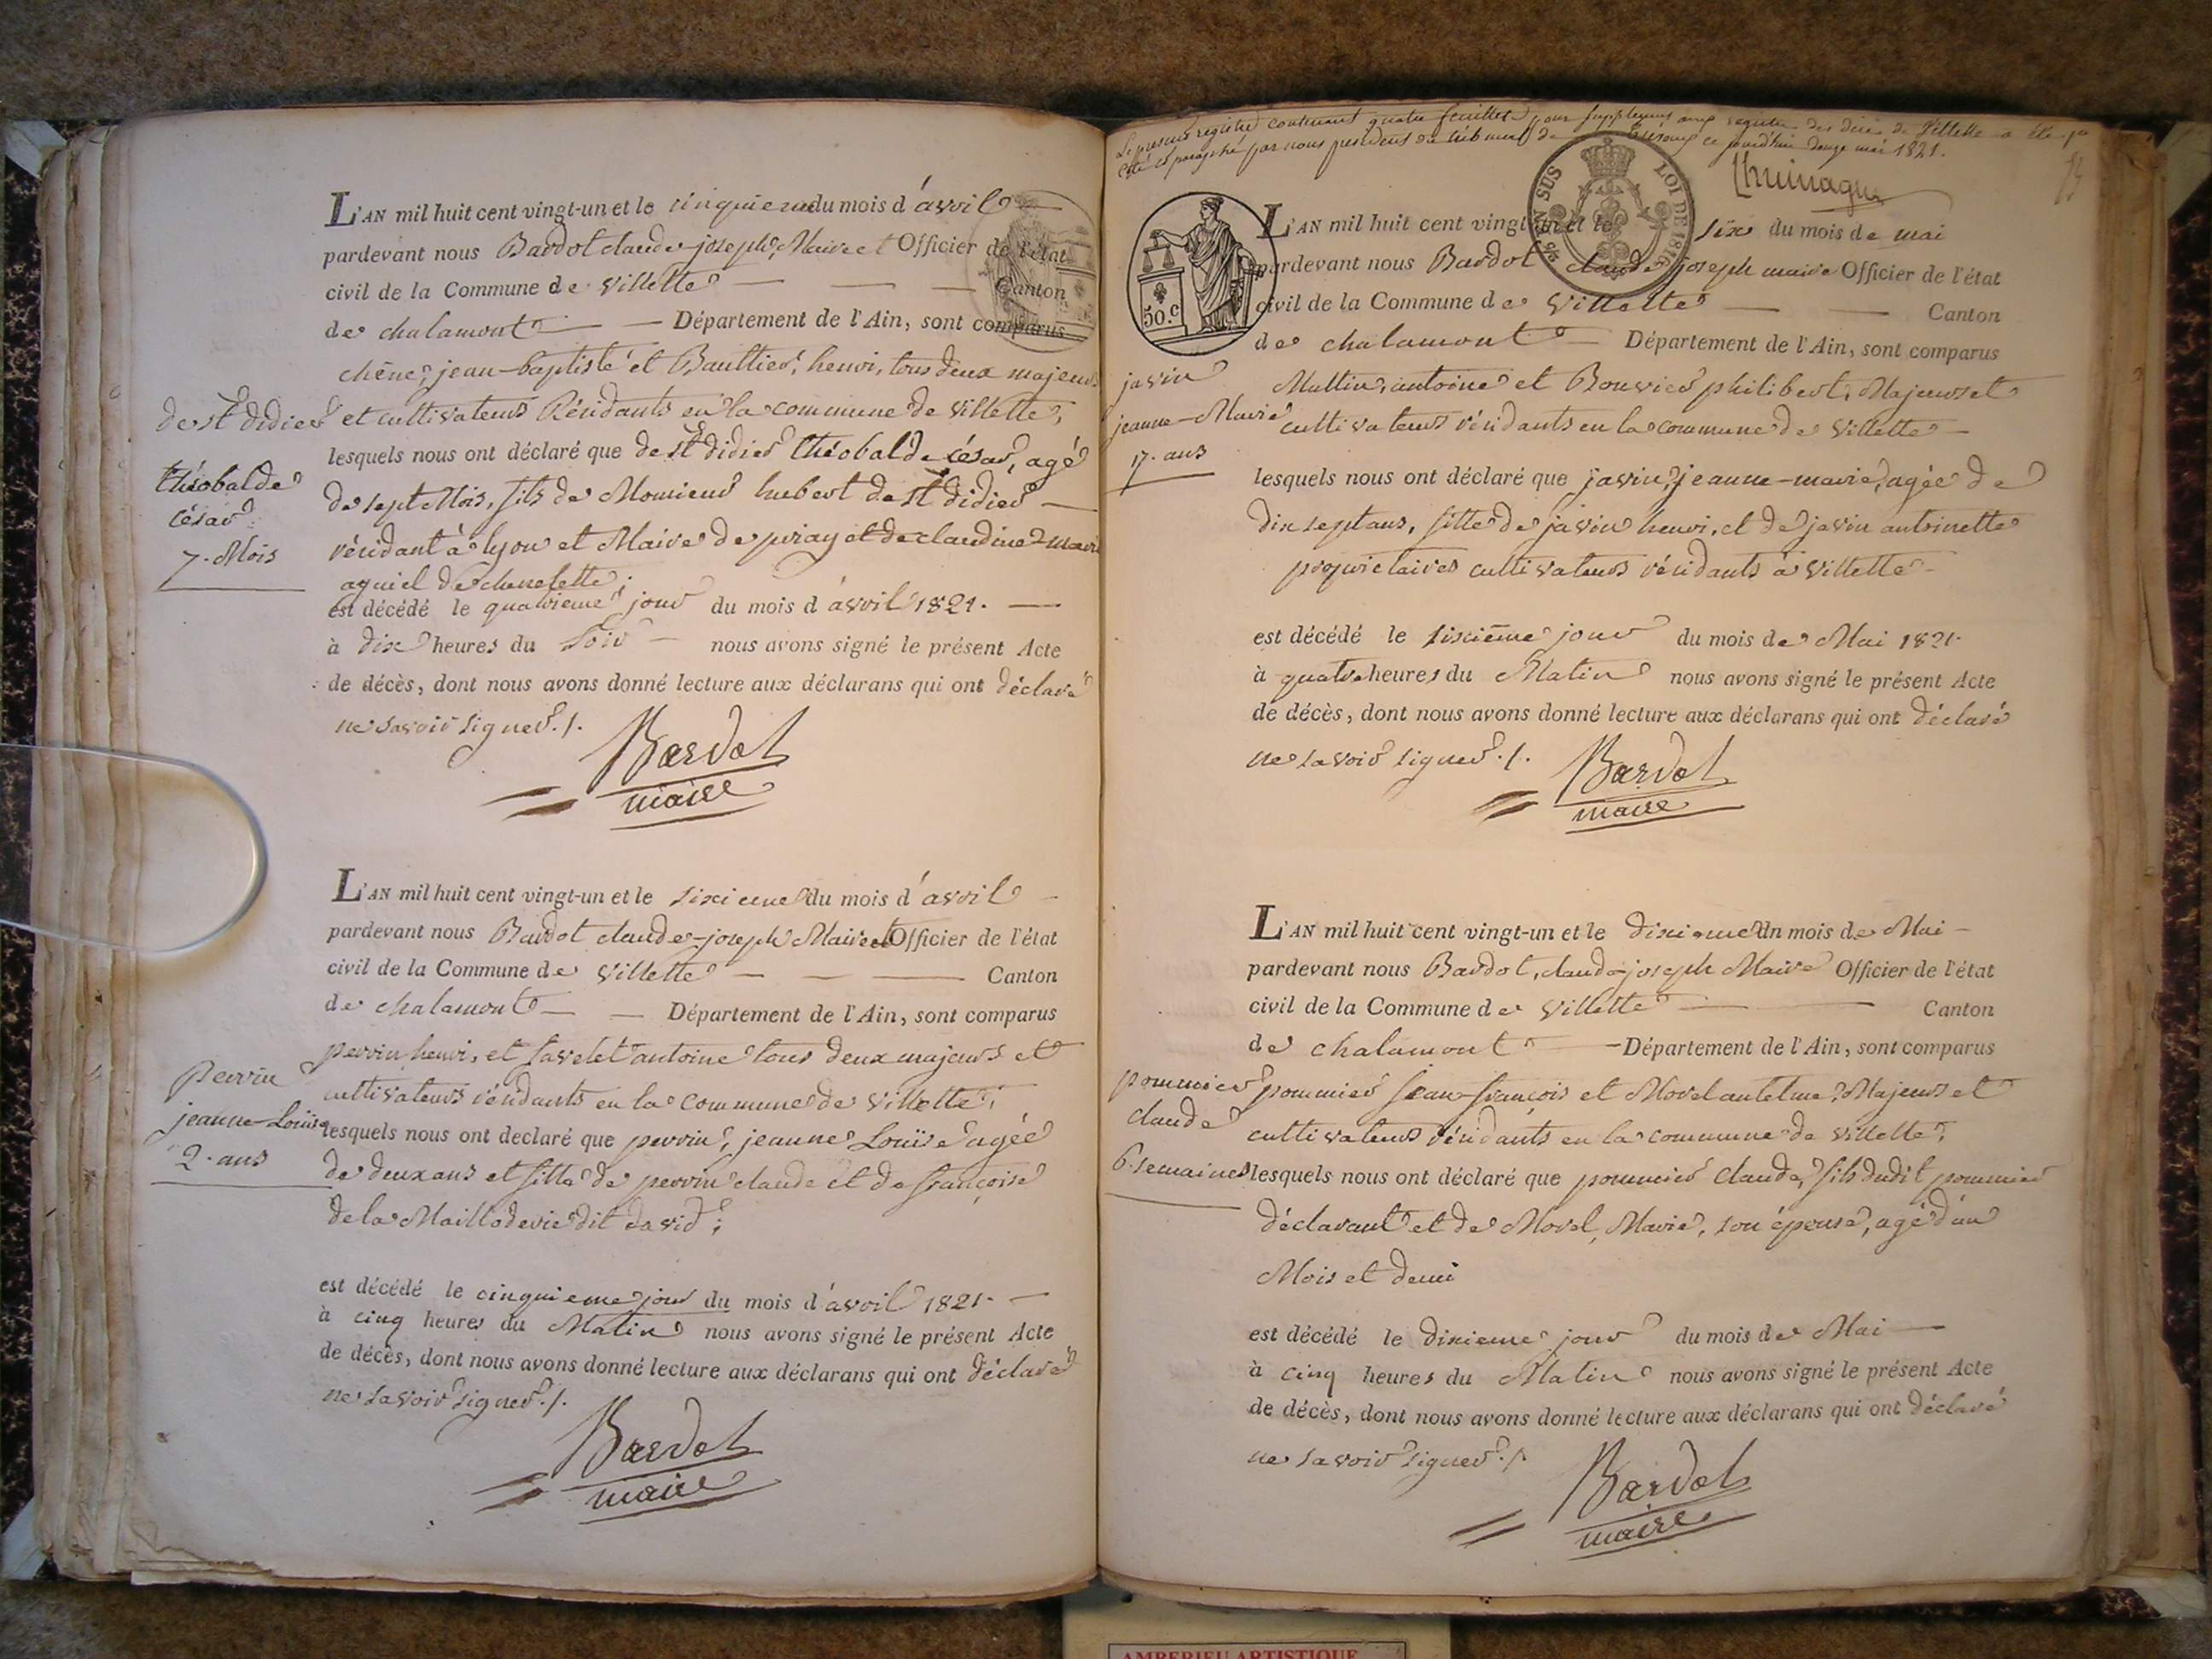 L'AN mil huit cent vingt-un et le cinquieme du mois d'avril
pardevant nous Bardot claude-joseph, Maire et Officier de l'état
civil de la Commune de Villette Canton
de chalamont Département de l'Ain, sont comparus
chêne, jean-baptiste et Baultier, henri, tous deux majeurs
et cultivateurs Résidants en la commune de Villette,
lesquels nous ont déclaré que de St didier théobalde césar, agé
de sept Mois, fils de Monsieur hubert de St didier
résidant à lyon et Maire de priay et de claudine marie
de chenelette;
est décédé le quatrieme jour du mois d'avril 1821.
à dix heures du Soir nous avons signé le présent Acte
de décès, dont nous avons donné lecture aux déclarans qui ont déclaré
ne savoir signer./.
Bardot
maire
de St didier
théobalde
césar
7. Mois
L'AN mil huit cent vingt-un et le sixieme du mois d'avril
pardevant nous Bardot claude-joseph Maire et Officier de l'état
civil de la Commune de Villette Canton
de chalamont Département de l'Ain, sont comparus
perrin henri, et tavelet antoine tous deux majeurs et
cultivateurs résidants en la commune de Villette,
lesquels nous ont declaré que perrin, jeanne Louïse agée
de deux ans et fille de perrin claude et de françoise
de la dit david;
est décédé le cinquieme jour du mois d'avril 1821.
à cinq heures du Matin nous avons signé le présent Acte
de décès, dont nous avons donné lecture aux déclarans qui ont déclaré
ne savoir signer./.
Bardot
maire
Perrin
jeanne-Louïse
2. ans
Le présent registre contenant quatre feuillets pour supplément aux registres des décès de Villette a été
coté et paraphé par nous président du tribunal de ce jourd'hui douze mai 1821.
50.c
SUS
LOI DE 1816
L'AN mil huit cent vingt-un et le six du mois de mai
pardevant nous Bardot claude joseph maire Officier de l'état
civil de la Commune de Villette Canton
de chalamont Département de l'Ain, sont comparus
Muttin, antoine et Bouvier philibert, Majeurs et
cultivateurs résidants en la commune de Villette
lesquels nous ont déclaré que javin, jeanne-marie, agée de
dix sept ans, fille de javin henri, et de javin antoinette
proprietaires cultivateurs résidants à Villette
est décédé le sixième jour du mois de Mai 1821.
à quatre heures du Matin nous avons signé le présent Acte
de décès, dont nous avons donné lecture aux déclarans qui ont déclaré
ne savoir signer./.
Bardot
maire
javin
jeanne-Marie
17. ans
L'AN mil huit cent vingt-un et le dixieme du mois de Mai
pardevant nous Bardot, claude-joseph Maire Officier de l'état
civil de la Commune de Villette Canton
de chalamont Département de l'Ain, sont comparus
pommier jean-françois et Morel antelme, Majeurs et
cultivateurs résidants en la commune de Villette,
lesquels nous ont déclaré que pommier claude, fils dudit pommier
déclarant et de Morel, Marie, son épouse, agé d'un
Mois et demi
est décédé le dixieme jour du mois de Mai
à cinq heures du Matin nous avons signé le présent Acte
de décès, dont nous avons donné lecture aux déclarans qui ont déclaré
ne savoir signer./.
Bardot
maire
pommier
claude
6. semaines
AMBERIEU ARTISTIQUE